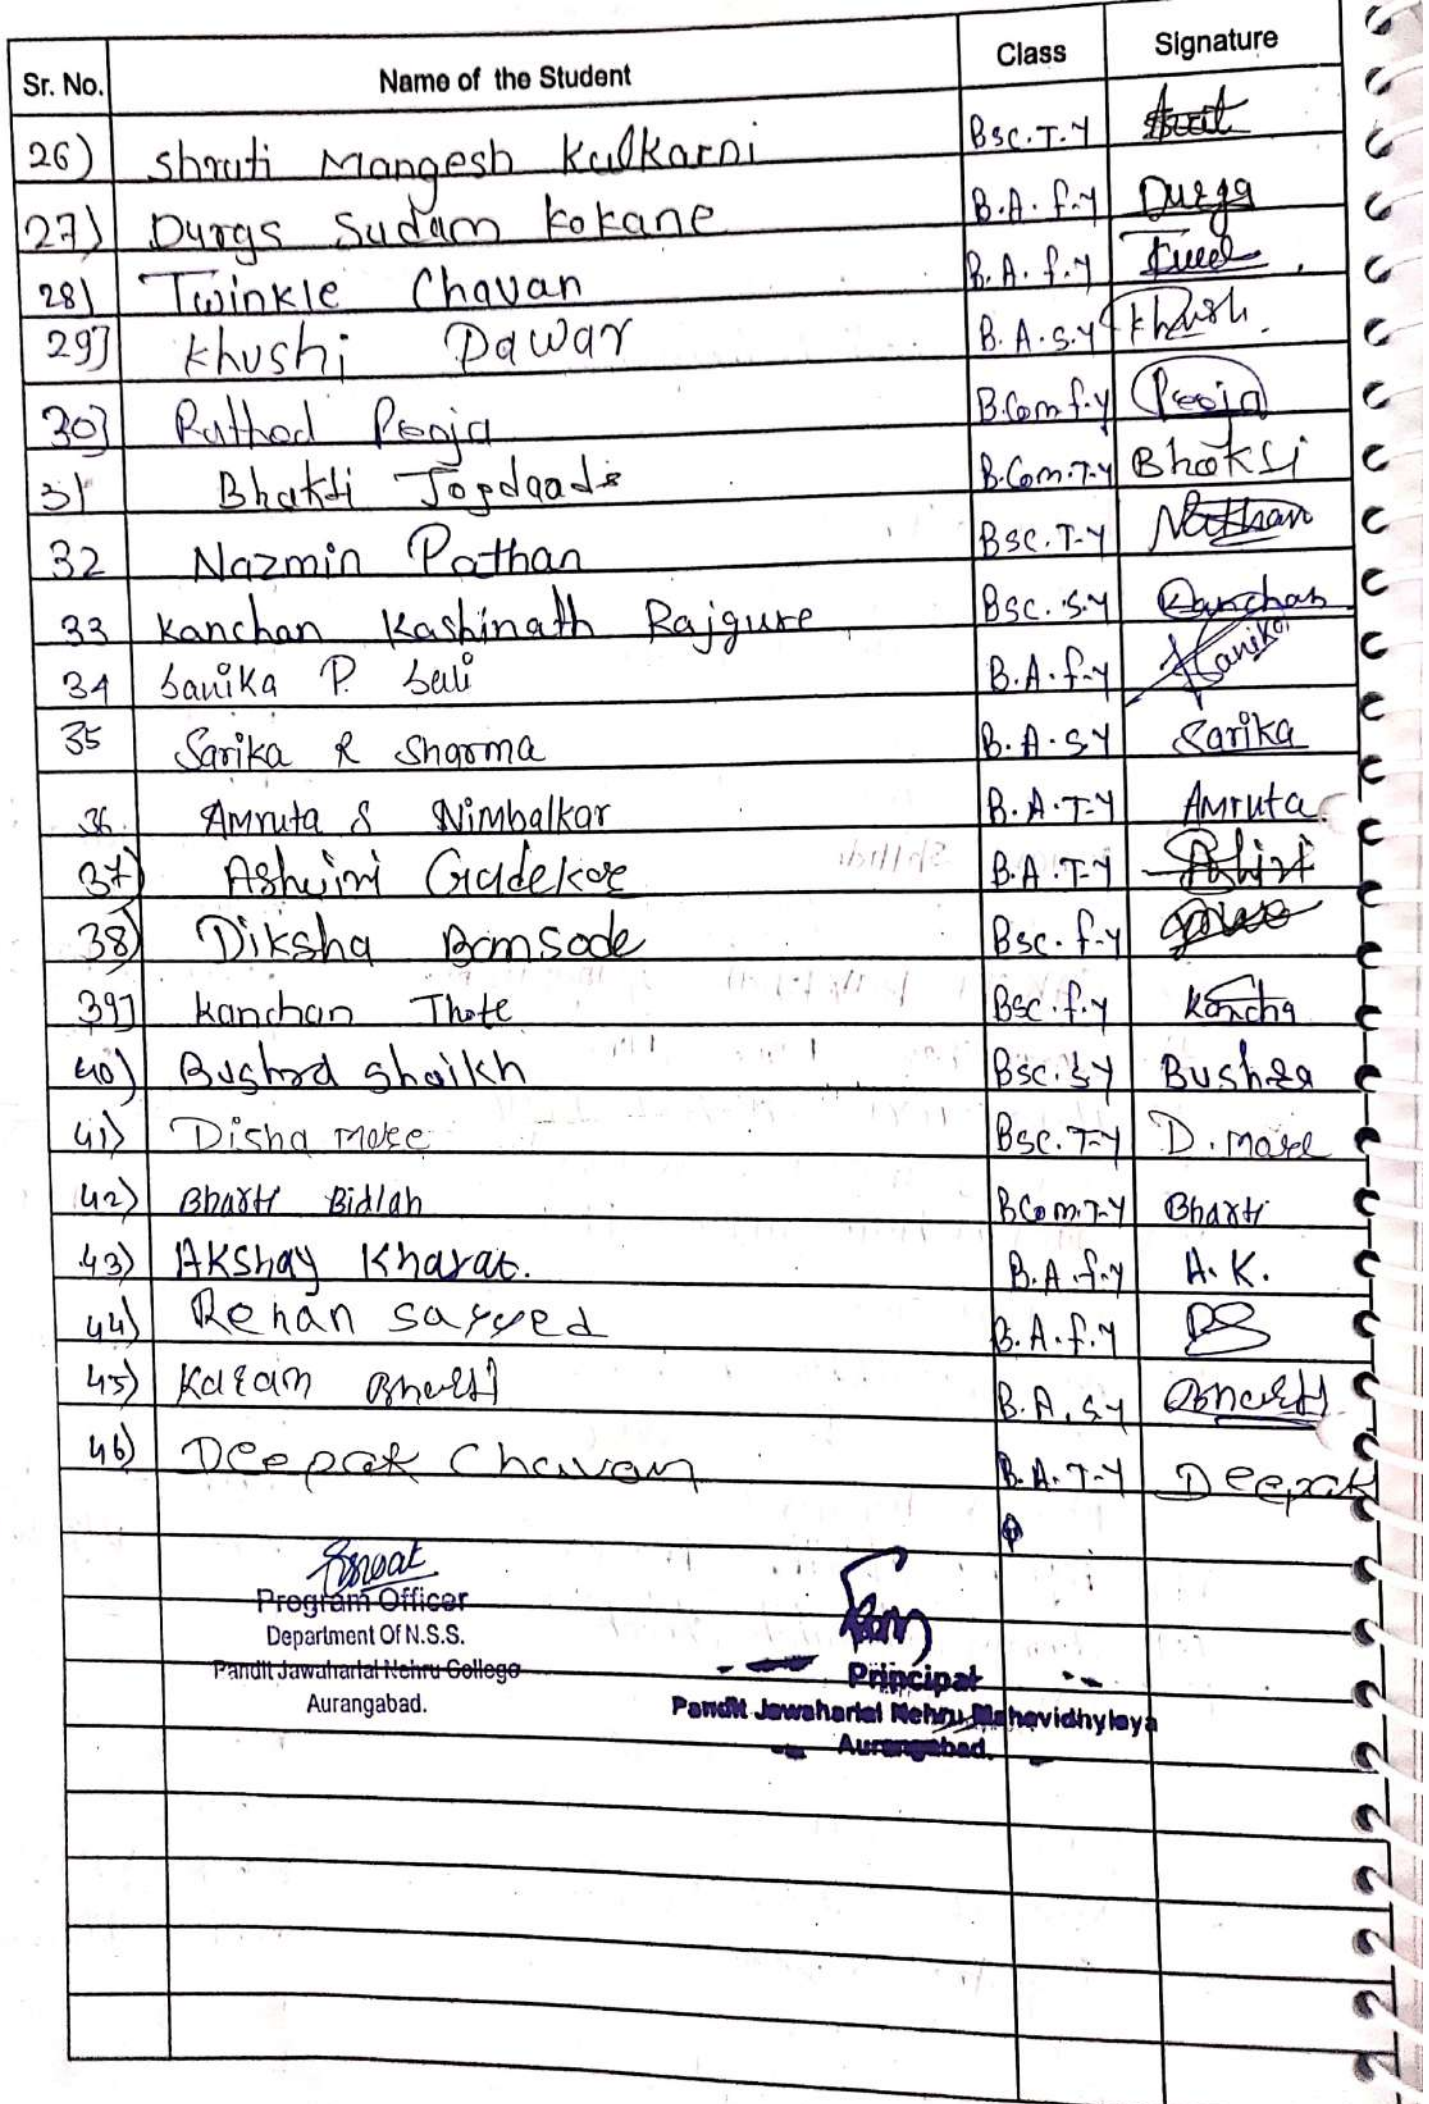 Sr. No. Name of the Student Class Signature
26) Shruti Mangesh Kulkarni Bsc.T-Y
27) Durgs Sudam Kokane B.A. f-y Durga
28) Twinkle Chavan B.A. f.y
29] Khushi Pawar B.A.S.Y Khush.
30] Rathod Pooja B.Com f-y Pooja
31 Bhakti B.Com.T-Y Bhakti
32 Nazmin Pathan Bsc.T-Y
33 Kanchan Kashinath Rajgure Bsc.S.Y Kanchan
34 Sanika P. B.A.f-y Sanika
35 Sarika R Sharma B.A.SY Sarika
36 Amruta S Nimbalkar B.A.T-Y Amruta
37) Ashwini Gadekar B.A.T-Y
38) Diksha Bamsode Bsc.f-y
39] Kanchan Thote Bsc.f.y Kancha
40) Bushra Shaikh Bsc.SY Bushra
41) Disha more Bsc.T-Y D. more
42) Bharti Bidlah BCom.T-Y Bharti
43) Akshay Kharat. B.A.f-y A.K.
44) Rehan Sayyed B.A.f.y
45) Kadam Bharti B.A.SY Bharti
46) Deepak Chavan B.A.T-Y Deepak
Program Officer
Department Of N.S.S.
Pandit Jawaharlal Nehru College
Aurangabad.
Principal
Pandit Jawaharlal Nehru Mahavidhylaya
Aurangabad.